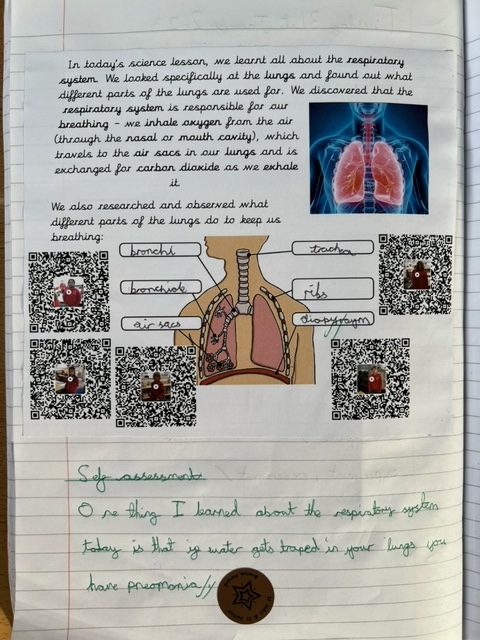 In today's science lesson, we learnt all about the respiratory
system. We looked specifically at the lungs and found out what
different parts of the lungs are used for. We discovered that the
respiratory system is responsible for our
breathing - we inhale oxygen from the air
(through the nasal or mouth cavity), which
travels to the air sacs in our lungs and is
exchanged for carbon dioxide as we exhale
it
We also researched and observed what
different parts of the lungs do to keep us
breathing:
bronchi
trachea
bronchiole
ribs
air sacs
Self assessment
One thing I learned about the respiratory system
today is that ig water gets traped in your lungs you
have pneomonia//